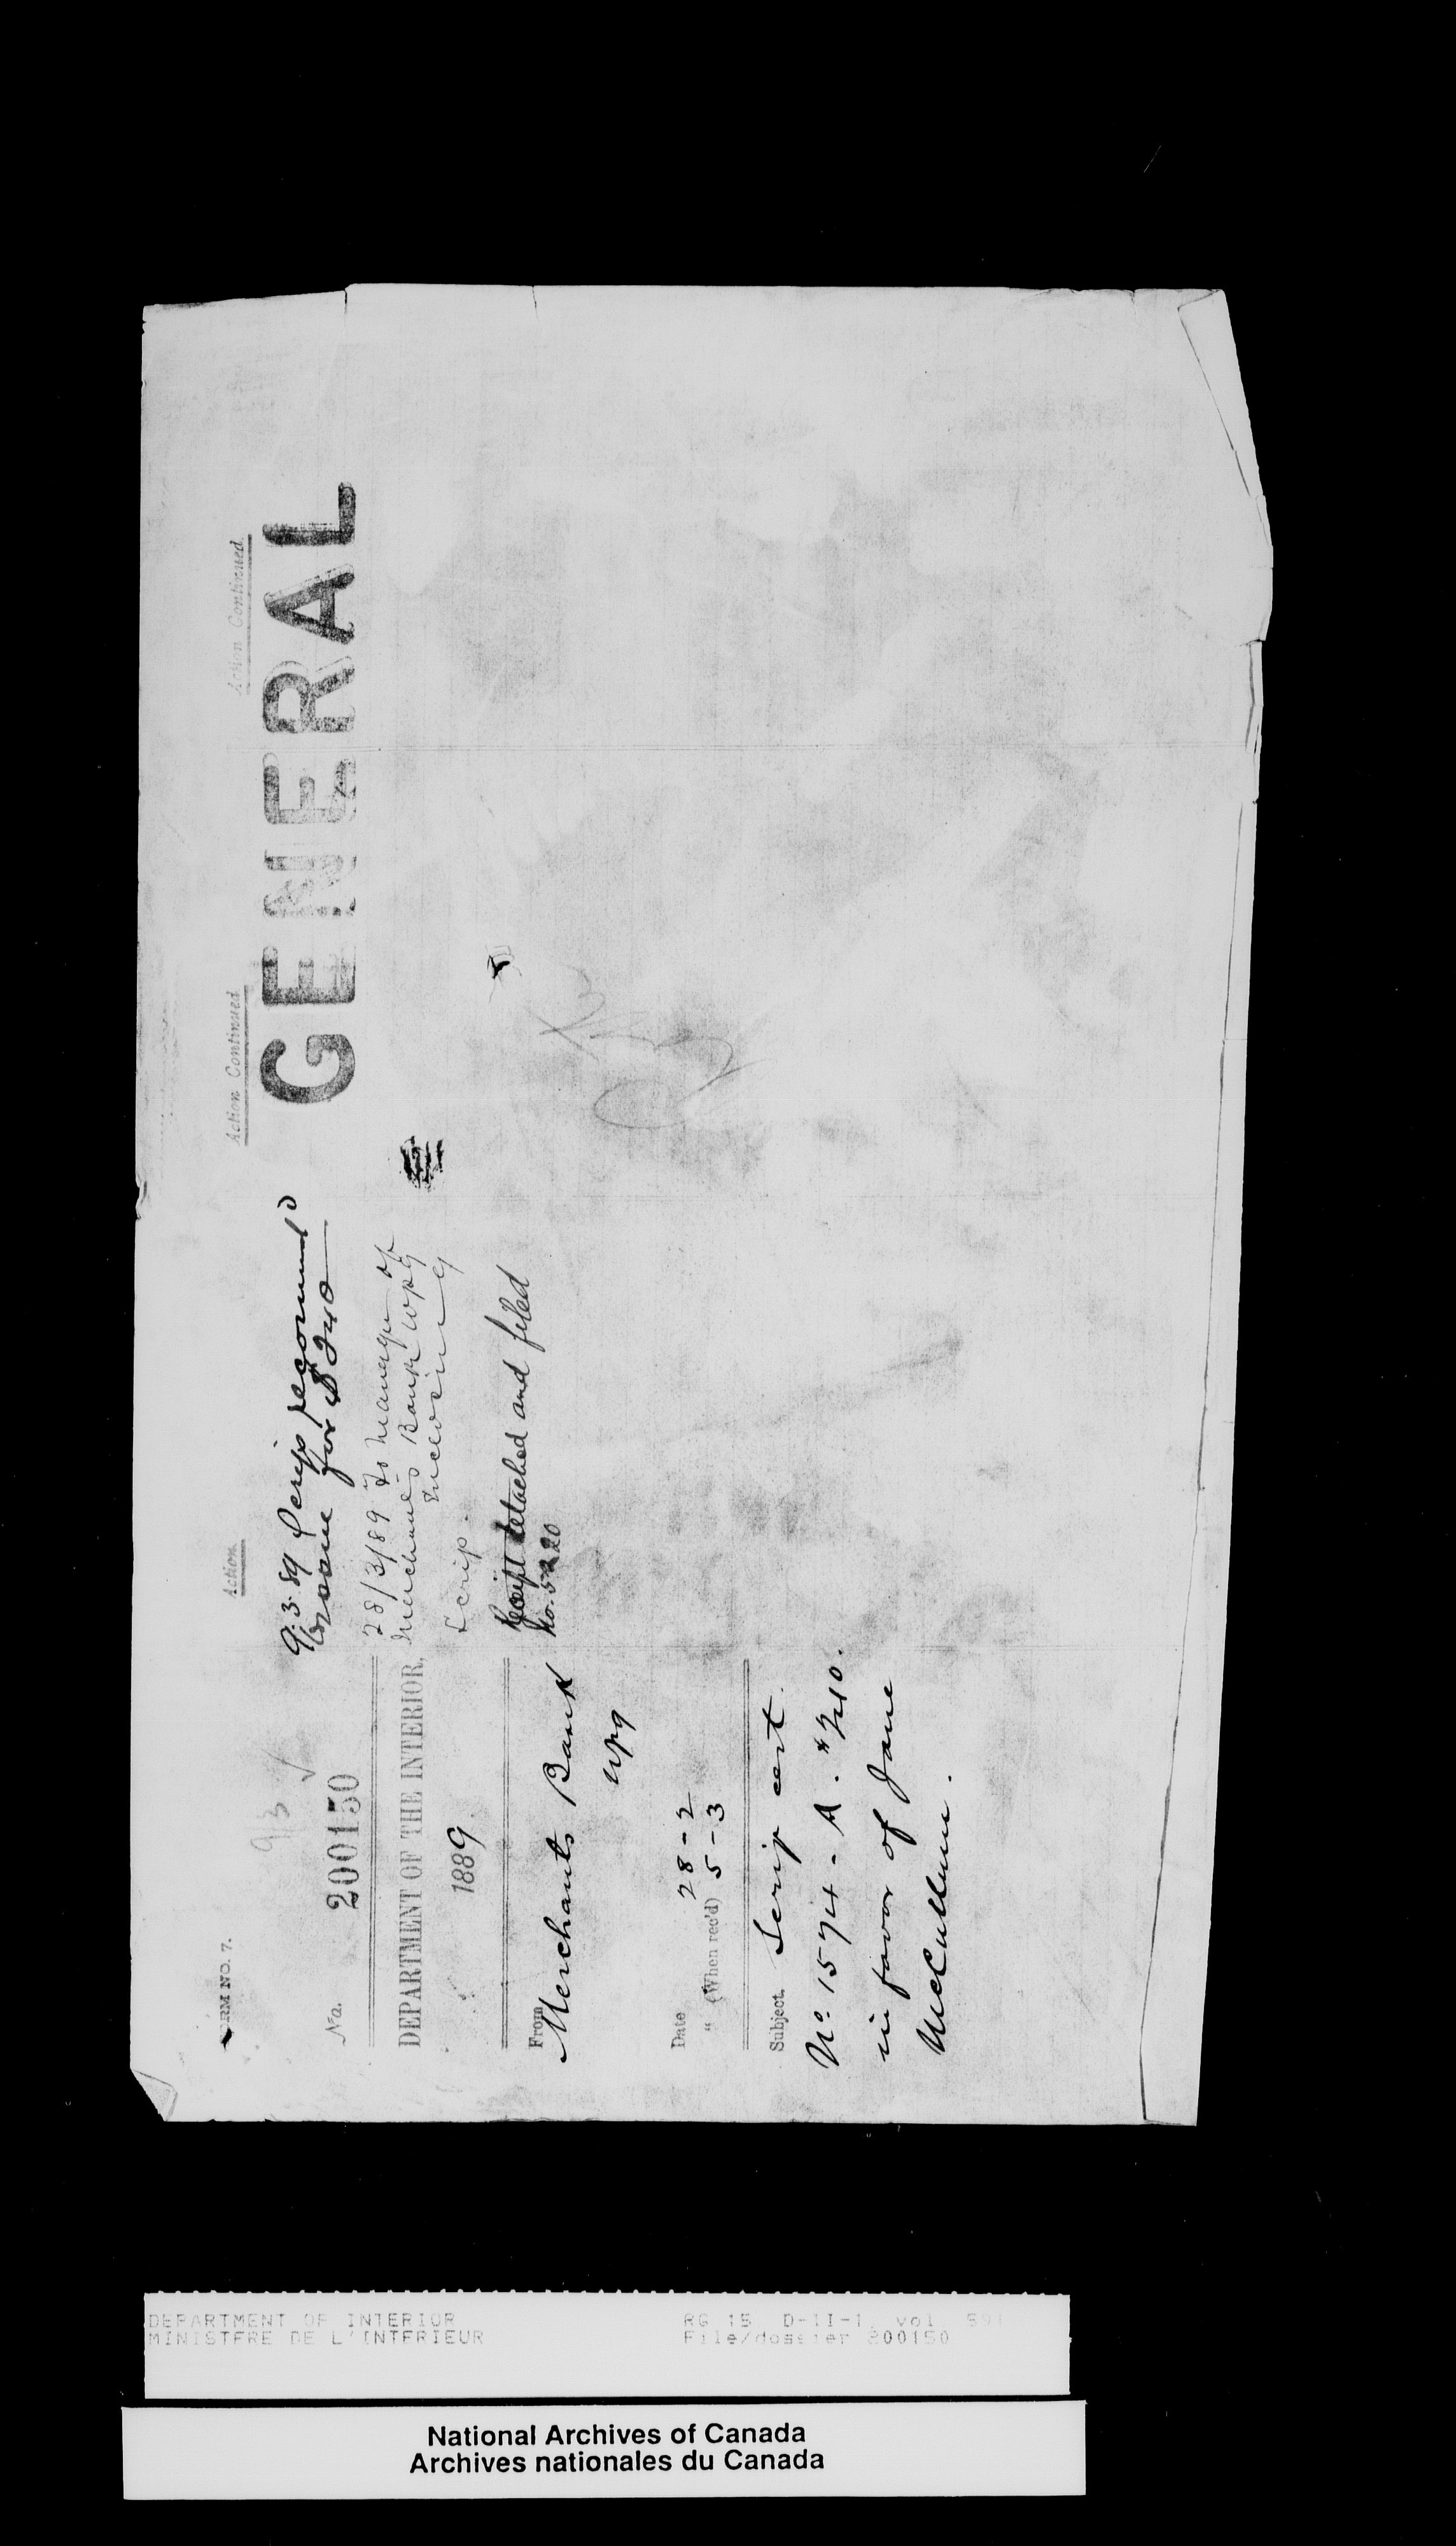 FORM NO. 7.
9/3
No. 200150
DEPARTMENT OF THE INTERIOR,
1889.
From
Merchants Bank
Wpg
Date 28-2
" (When rec'd) 5-3
Subject. Scrip cert.
No 1574 - A. $240.
in favor of Jane
McCallum.
Action.
9.3.89 Scrip
for $240
28/3/89 To Manager of
Merchants Bank Wpg
Enclosing
Scrip.
Receipt detached and filed
No. 5220
Action Continued
Action Continued.
GENERAL
DEPARTMENT OF INTERIOR RG 15 D-II-1, vol 591
MINISTERE DE L'INTERIEUR File/dossier 200150
National Archives of Canada
Archives nationales du Canada